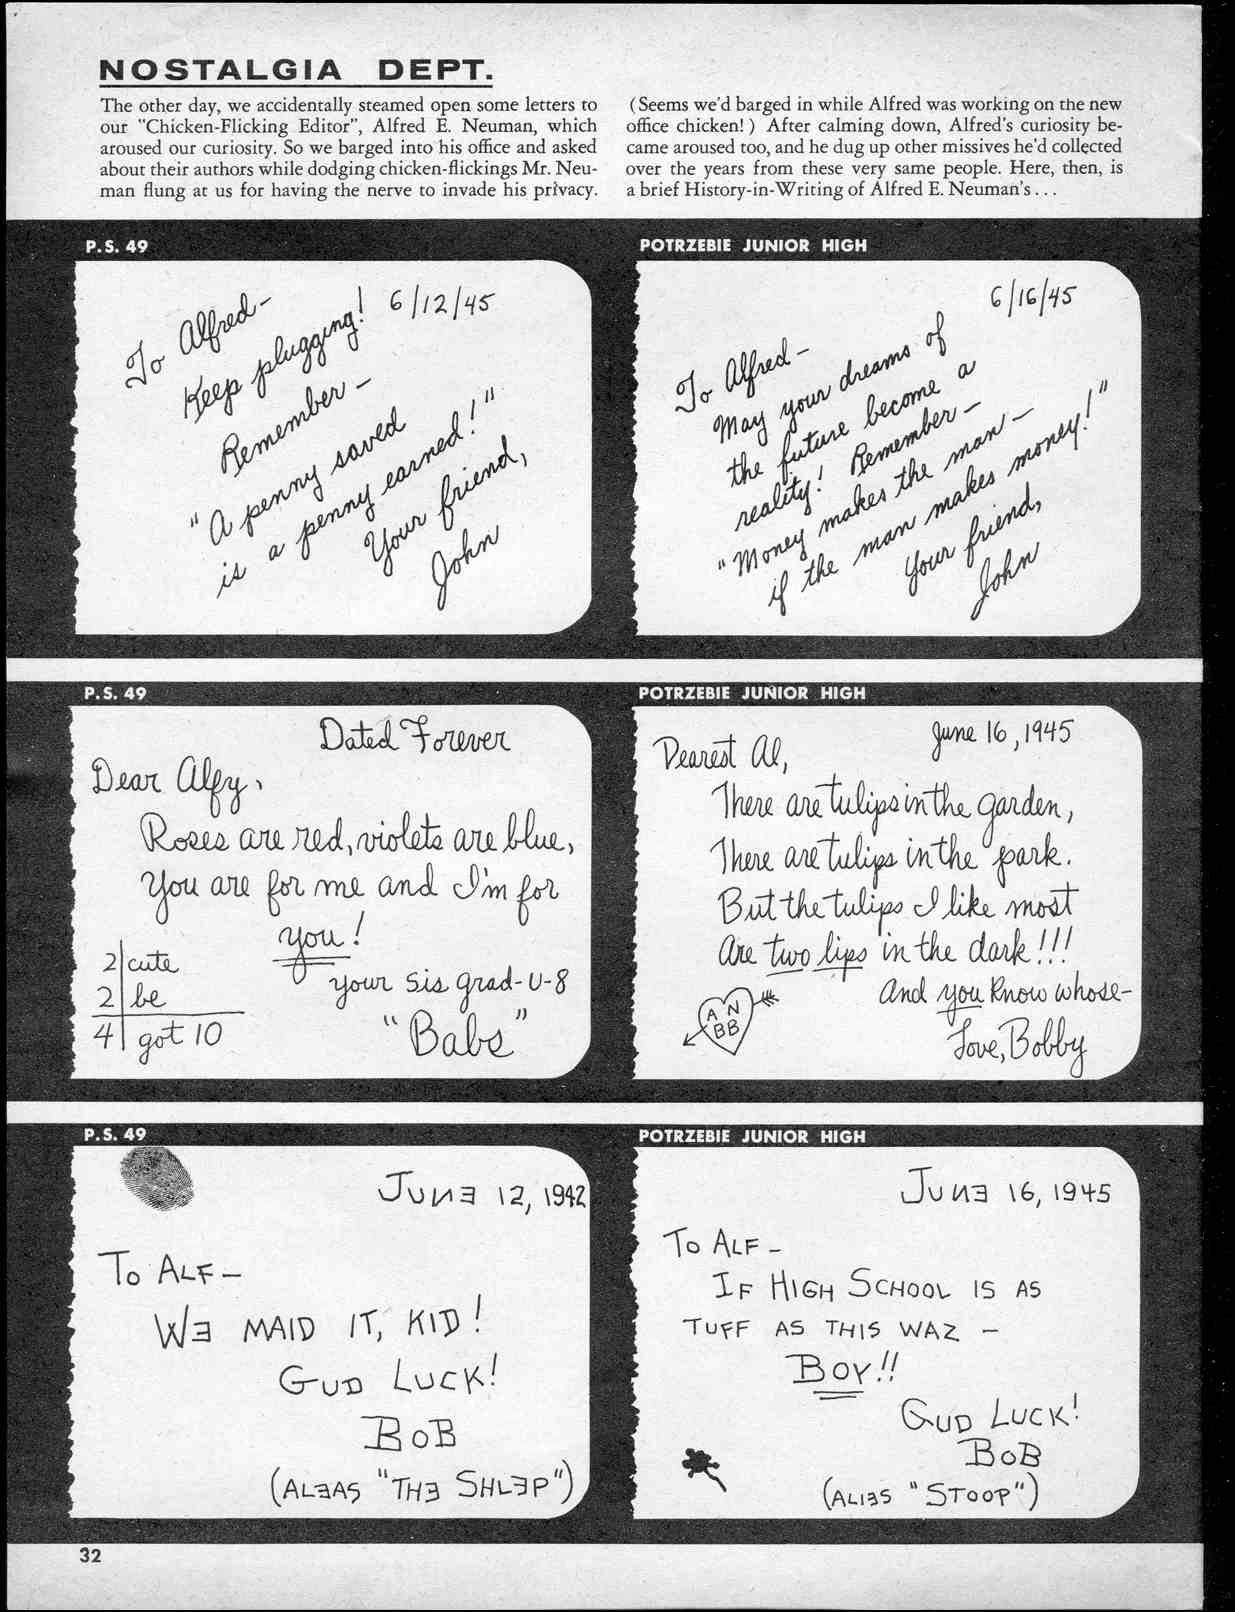 NOSTALGIA DEPT.
The other day, we accidentally steamed open some letters to
our "Chicken-Flicking Editor", Alfred E. Neuman, which
aroused our curiosity. So we barged into his office and asked
about their authors while dodging chicken-flickings Mr. Neu-
man flung at us for having the nerve to invade his privacy.
(Seems we'd barged in while Alfred was working on the new
office chicken!) After calming down, Alfred's curiosity be-
came aroused too, and he dug up other missives he'd collected
over the years from these very same people. Here, then, is
a brief History-in-Writing of Alfred E. Neuman's...
P.S. 49
6/12/45
To Alfred-
Keep plugging!
Remember-
"A penny saved
is a penny earned!"
Your friend,
John
POTRZEBIE JUNIOR HIGH
6/16/45
To Alfred-
May your dreams of
the future become a
reality! Remember-
"Money makes the man-
if the man makes money!"
Your friend,
John
P.S. 49
Dated Forever
Dear Alfy,
Roses are red, violets are blue,
You are for me and I'm for
you!
2 cute
2 be
4 got 10
your sis grad-U-8
"Babs"
POTRZEBIE JUNIOR HIGH
June 16, 1945
Dearest Al,
There are tulips in the garden,
There are tulips in the park.
But the tulips I like most
Are two lips in the dark!!!
And you know whose-
Love, Bobby
A N
BB
P.S. 49
JUNE 12, 1942
TO ALF-
WE MAID IT, KID!
GUD LUCK!
BOB
(ALEAS "THE SHLEP")
POTRZEBIE JUNIOR HIGH
JUNE 16, 1945
TO ALF-
IF HIGH SCHOOL IS AS
TUFF AS THIS WAZ -
BOY!!
GUD LUCK!
BOB
(ALIES "STOOP")
32